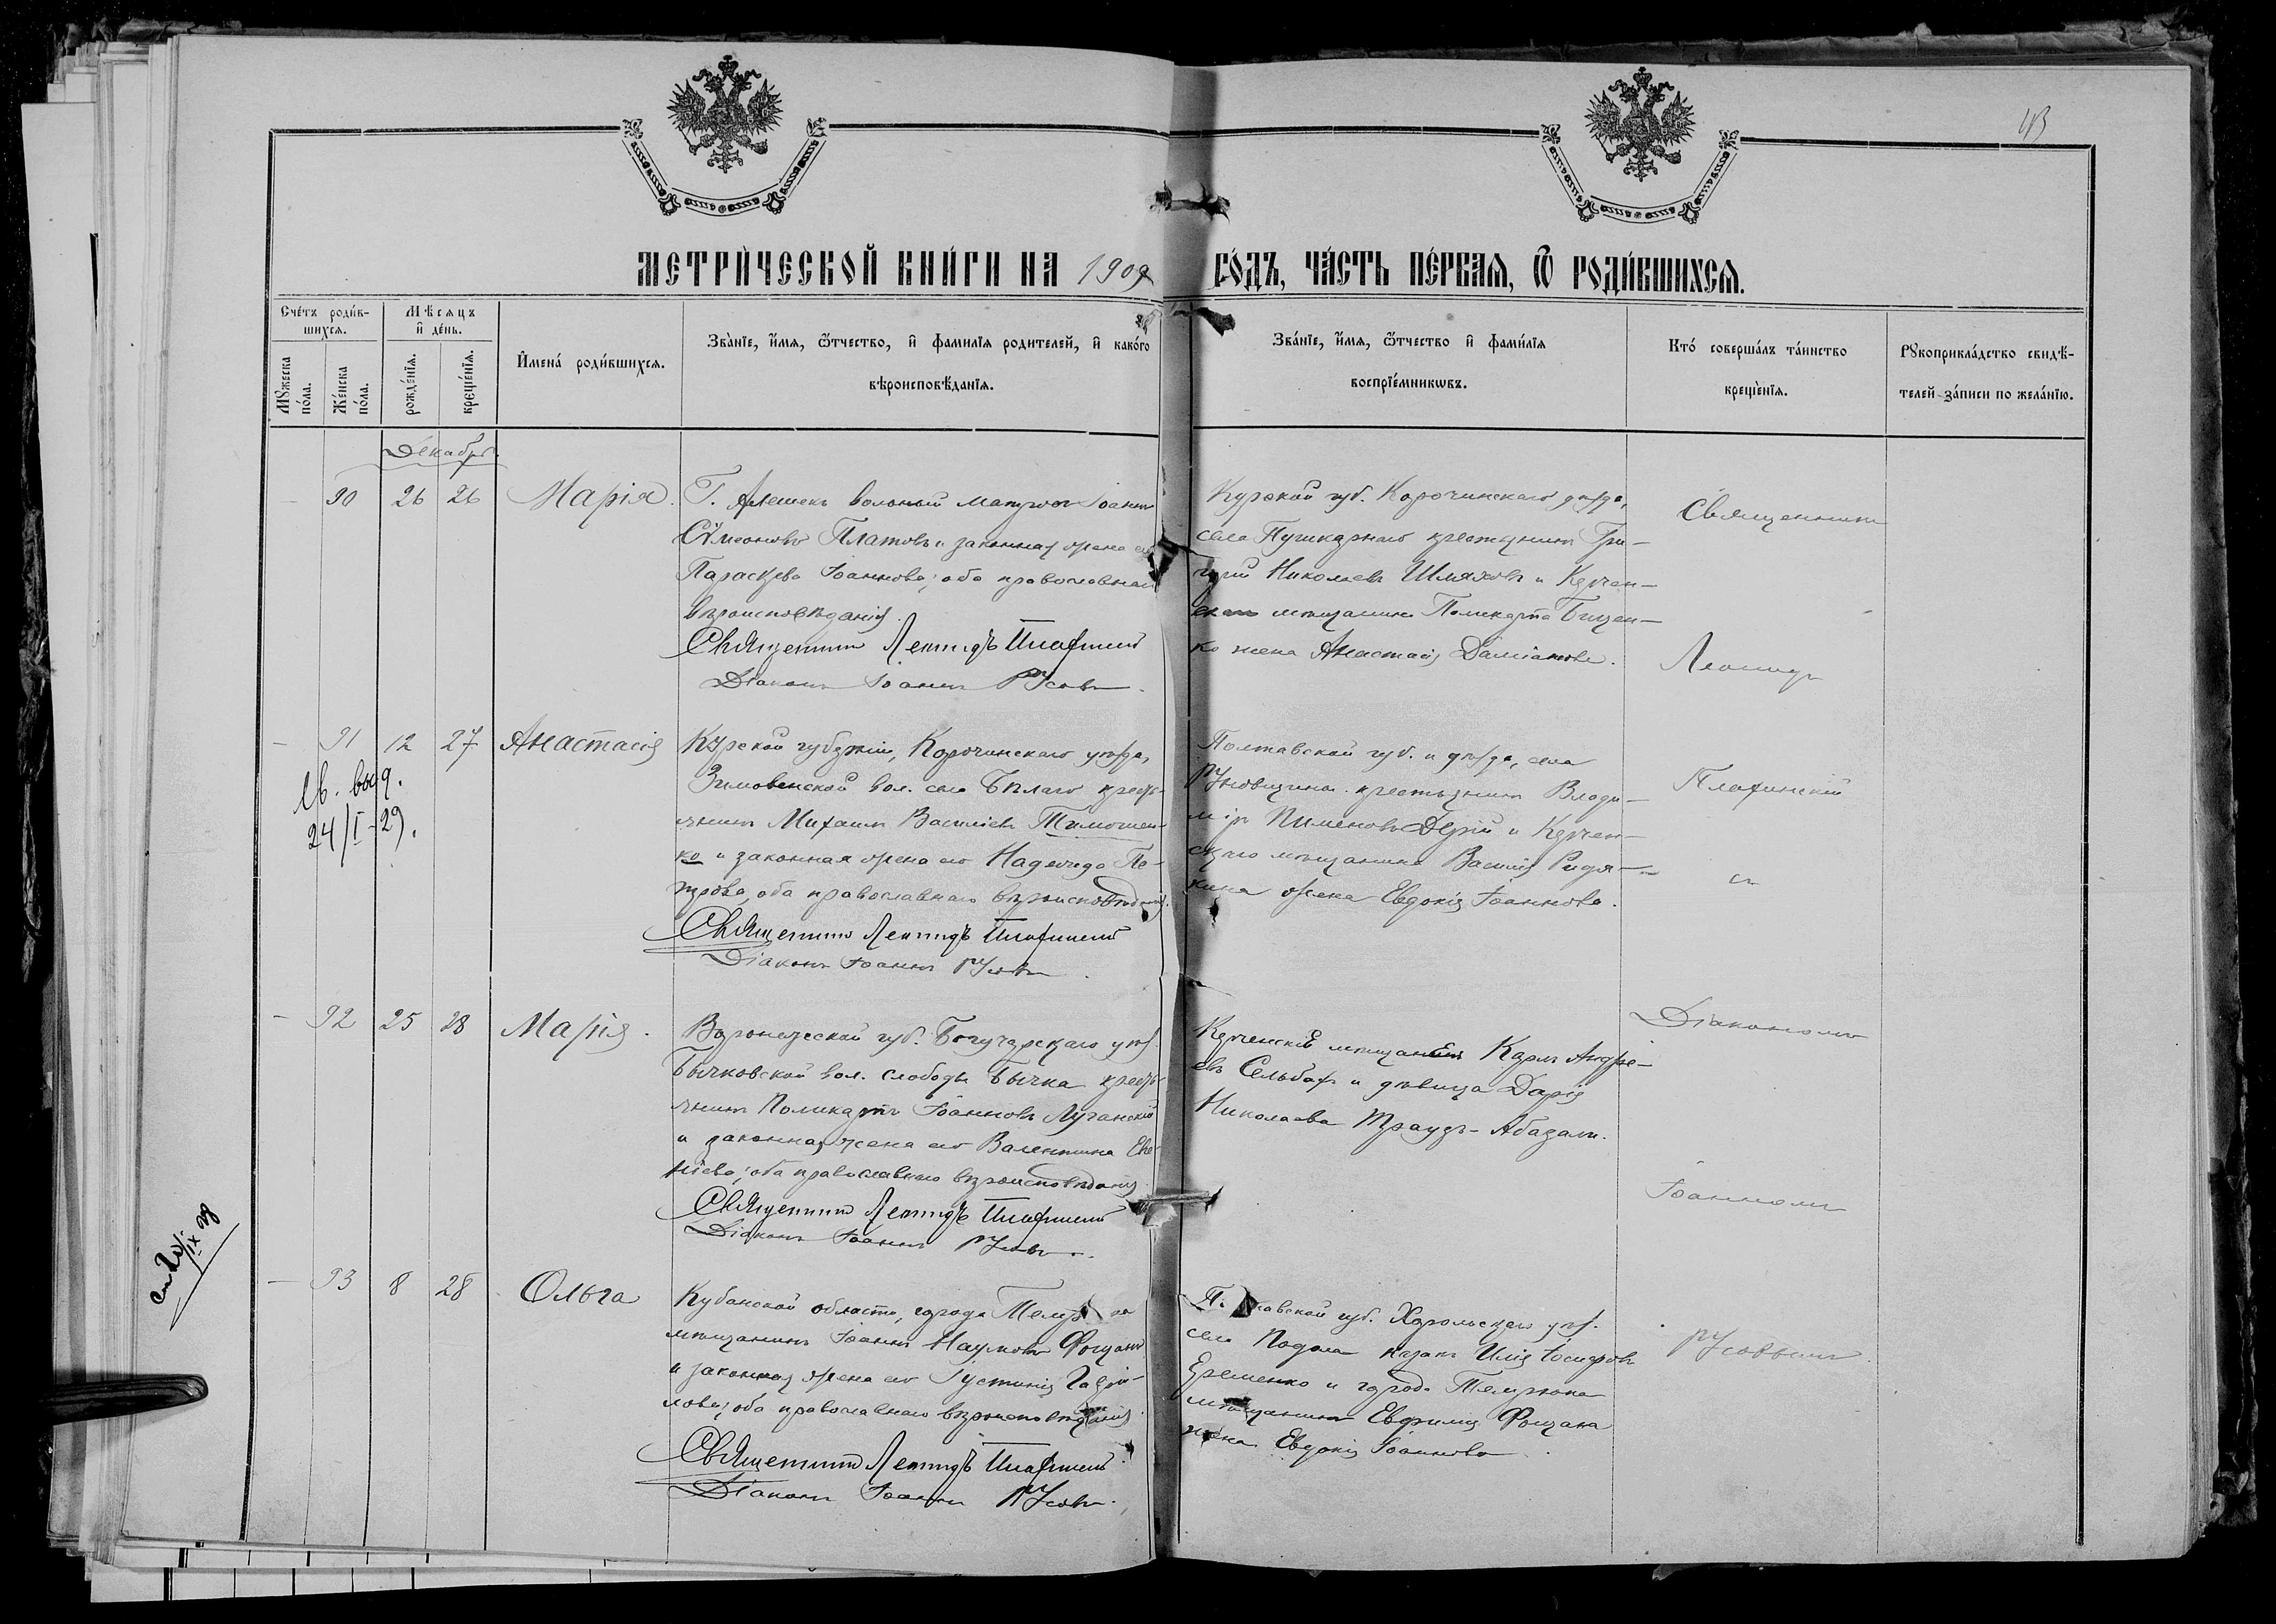 43
МЕТРИ́ЧЕСКОЙ КНИ́ГИ НА 1909 ГО́ДЪ, ЧА́СТЬ ПЕ́РВАЯ, Ѿ РОДИ́ВШИХСЯ.
Сче́тъ роди́в-
шихся.
Мꙋжеска
по́ла.
Же́нска
по́ла.
Мѣсяцъ
и҆ де́нь.
рожде́нїѧ.
креще́нїѧ.
И҆мена́ роди́вшихсѧ.
Зва́нїе, и҆́мѧ, ѻ҆́тчество, и҆ фами́лїѧ роди́телей, и҆ како́гѡ
вѣроисповѣ́данїѧ.
Зва́нїе, и҆́мѧ, ѻ҆́тчество и҆ фами́лїѧ
воспрїе́мникѡвъ.
Кто́ соверша́лъ та́инство
креще́нїѧ.
Рꙋкоприкла́дство свидѣ́-
телей за́писи по жела́нїю.
Декабрь
90 26 26 Марія.
Г. Алешекъ вольный матросъ Іоаннъ
Сѵмеоновъ Платовъ и законная жена его
Параскева Іоаннова; оба православнаго
вѣроисповѣданія.
Священникъ Леонидъ Плафинскій
Діаконъ Іоаннъ Русовъ.
Курской губ. Корочинскаго уѣзда,
села Пушкарнаго крестьянинъ Гри-
горій Николаевъ Шляховъ и Керчен-
мѣщанина Поликарпа Бицен-
ко жена Анастасія Даміанова.
Священникъ
Леонидъ
91 12 27 Анастасія
Св. выд.
24/I-29.
Курской губерніи, Корочинскаго уѣзда,
Зимовенской вол. села Бѣлаго кресть-
янинъ Михаилъ Василіевъ Тимошен-
ко и законная жена его Надежда Пе-
трова, оба православнаго вѣроисповѣданія.
Священникъ Леонидъ Плафинскій
Діаконъ Іоаннъ Русовъ
Полтавской губ. и уѣзда, села
Руновщина крестьянинъ Влади-
міръ Пименовъ Дерій и Керчен-
скаго мѣщанина Василія Редя-
кина жена Евдокія Іоаннова.
Плафинскій
съ
92 25 28 Марія.
Воронежской губ. Богучарскаго уѣз.
Бычковской вол. слободы Бычка кресть-
янинъ Поликарпъ Іоанновъ Луганскій
и законная жена его Валентина Евге-
ніева; оба православнаго вѣроисповѣданія
Священникъ Леонидъ Плафинскій
Діаконъ Іоаннъ Русовъ.
Керченскій мѣщанинъ Карлъ Андре-
евъ Сельбах и дѣвица Дарія
Николаева Траудъ-Абазали.
Діакономъ
Іоанномъ
93 8 28 Ольга
Кубанской области, города
мѣщанинъ Іоаннъ Наумовъ Фощанъ
и законная жена его Іустинія Гаврі-
лова; оба православнаго вѣроисповѣданія
Священникъ Леонидъ Плафинскій
Діаконъ Іоаннъ Русовъ.
губ. Хорольскаго уѣз.
села Подола казакъ Илія Іосифовъ
Еременко и города Темрюка
мѣщанина Евфимія Фощана
жена Евдокія Іоаннова
Русовымъ